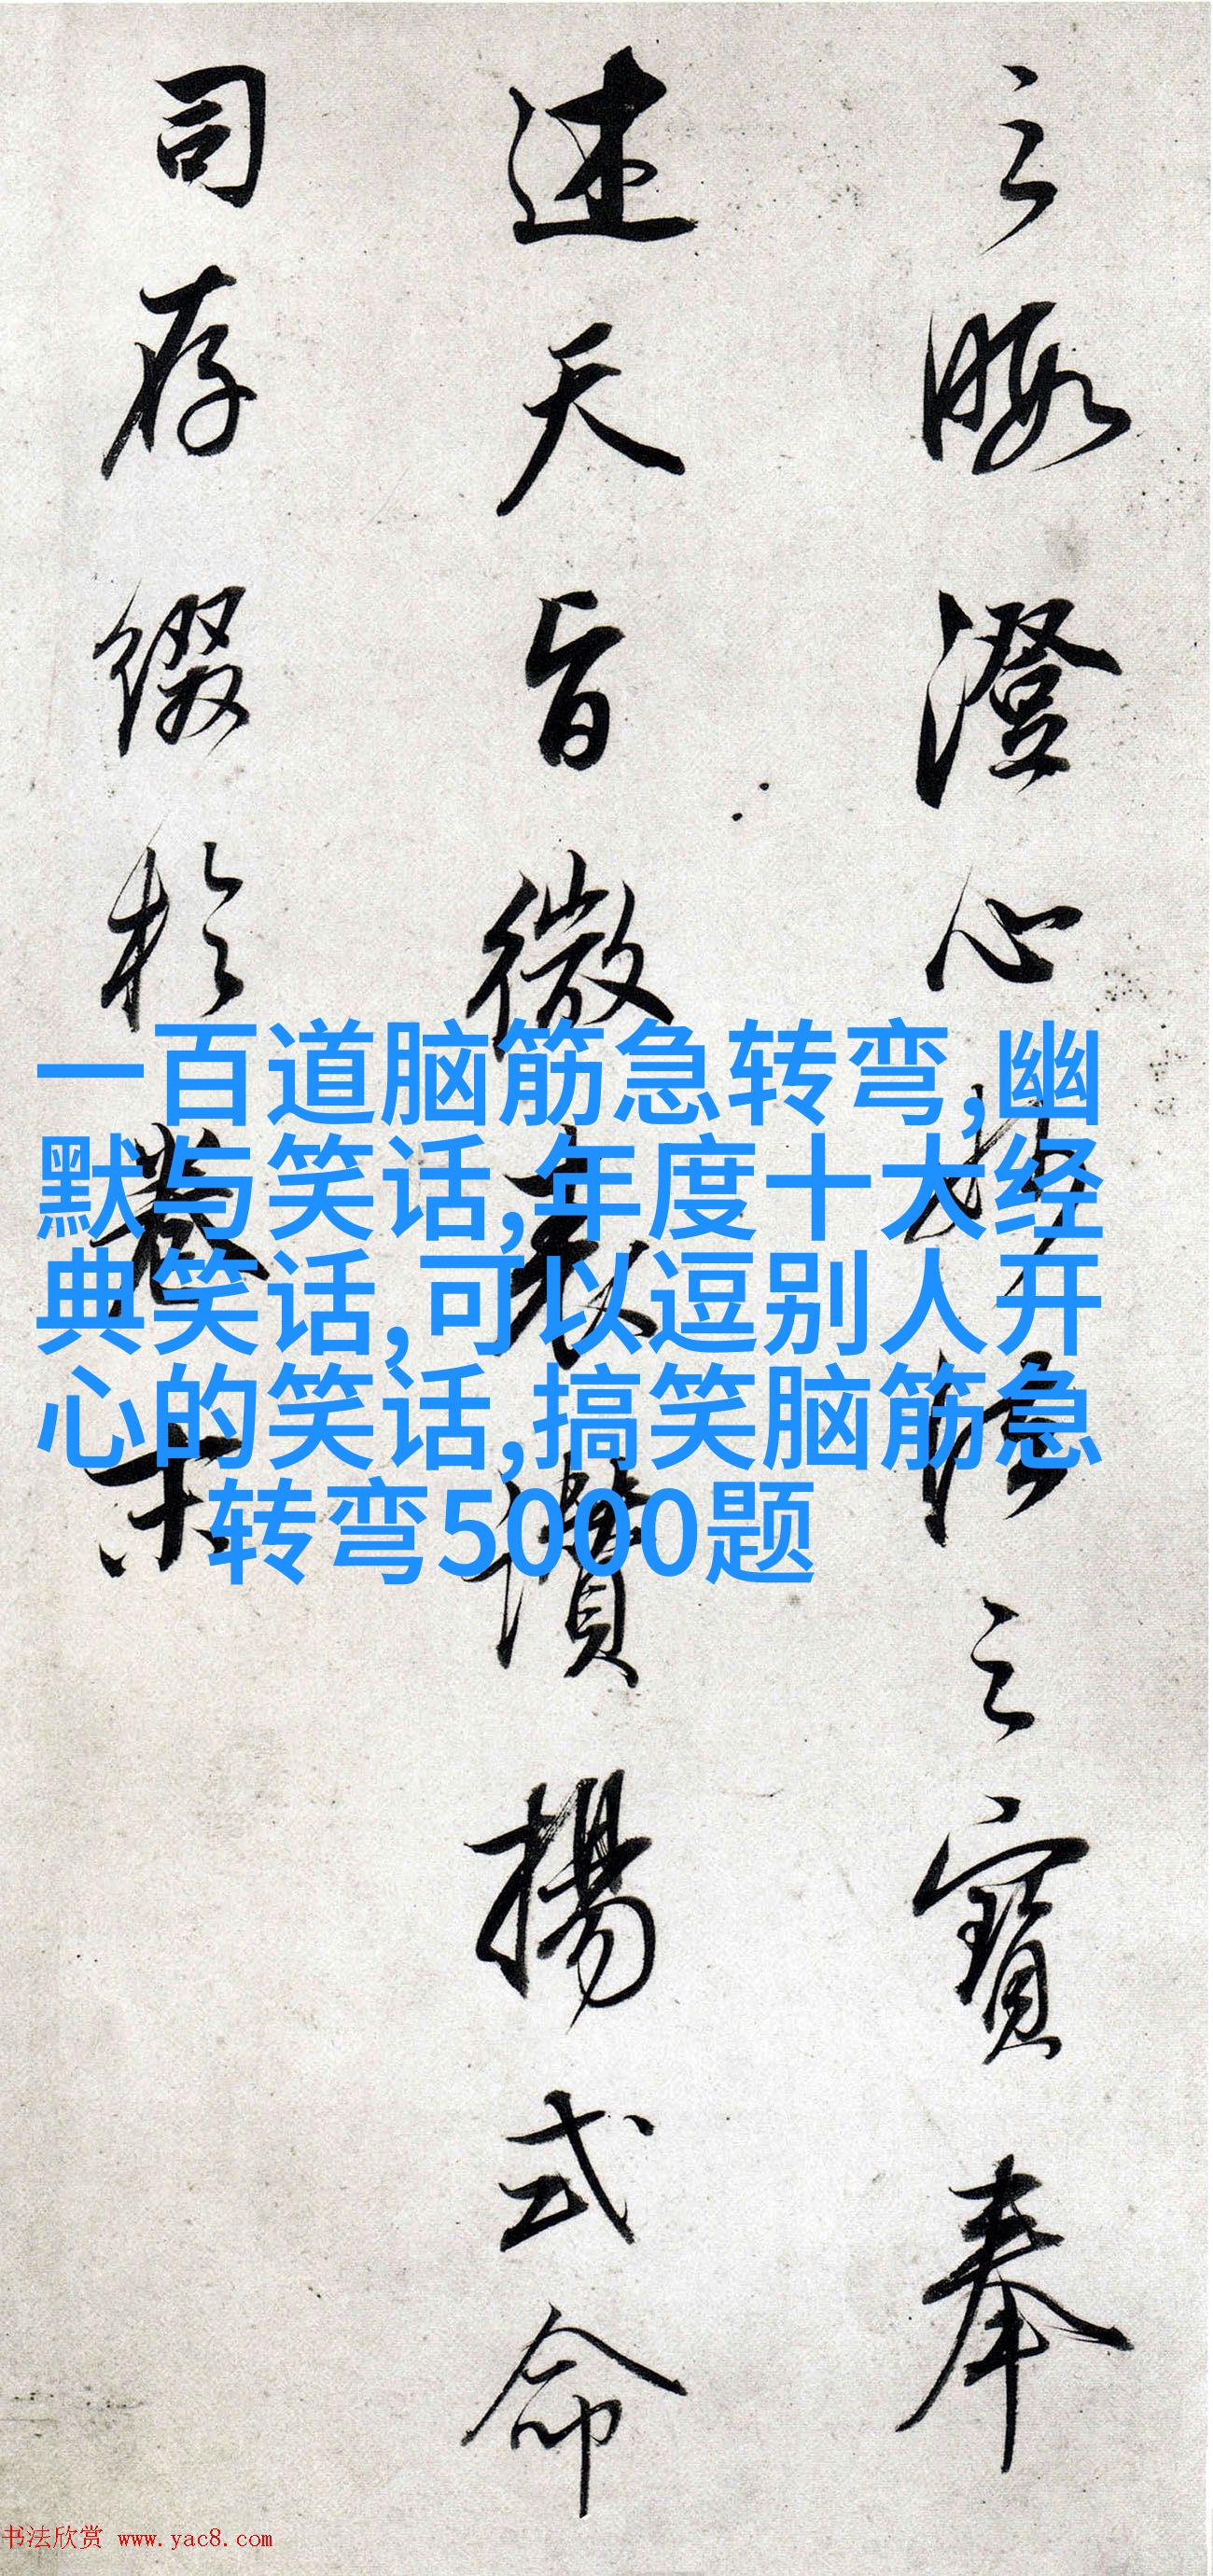 之暇澄心
之寶奉
述天旨微表讚揚式命
司存缀於卷末
一百道脑筋急转弯,幽
默与笑话,年度十大经
典笑话,可以逗别人开
心的笑话,搞笑脑筋急
转弯5000题
书法欣赏 www.yac8.com